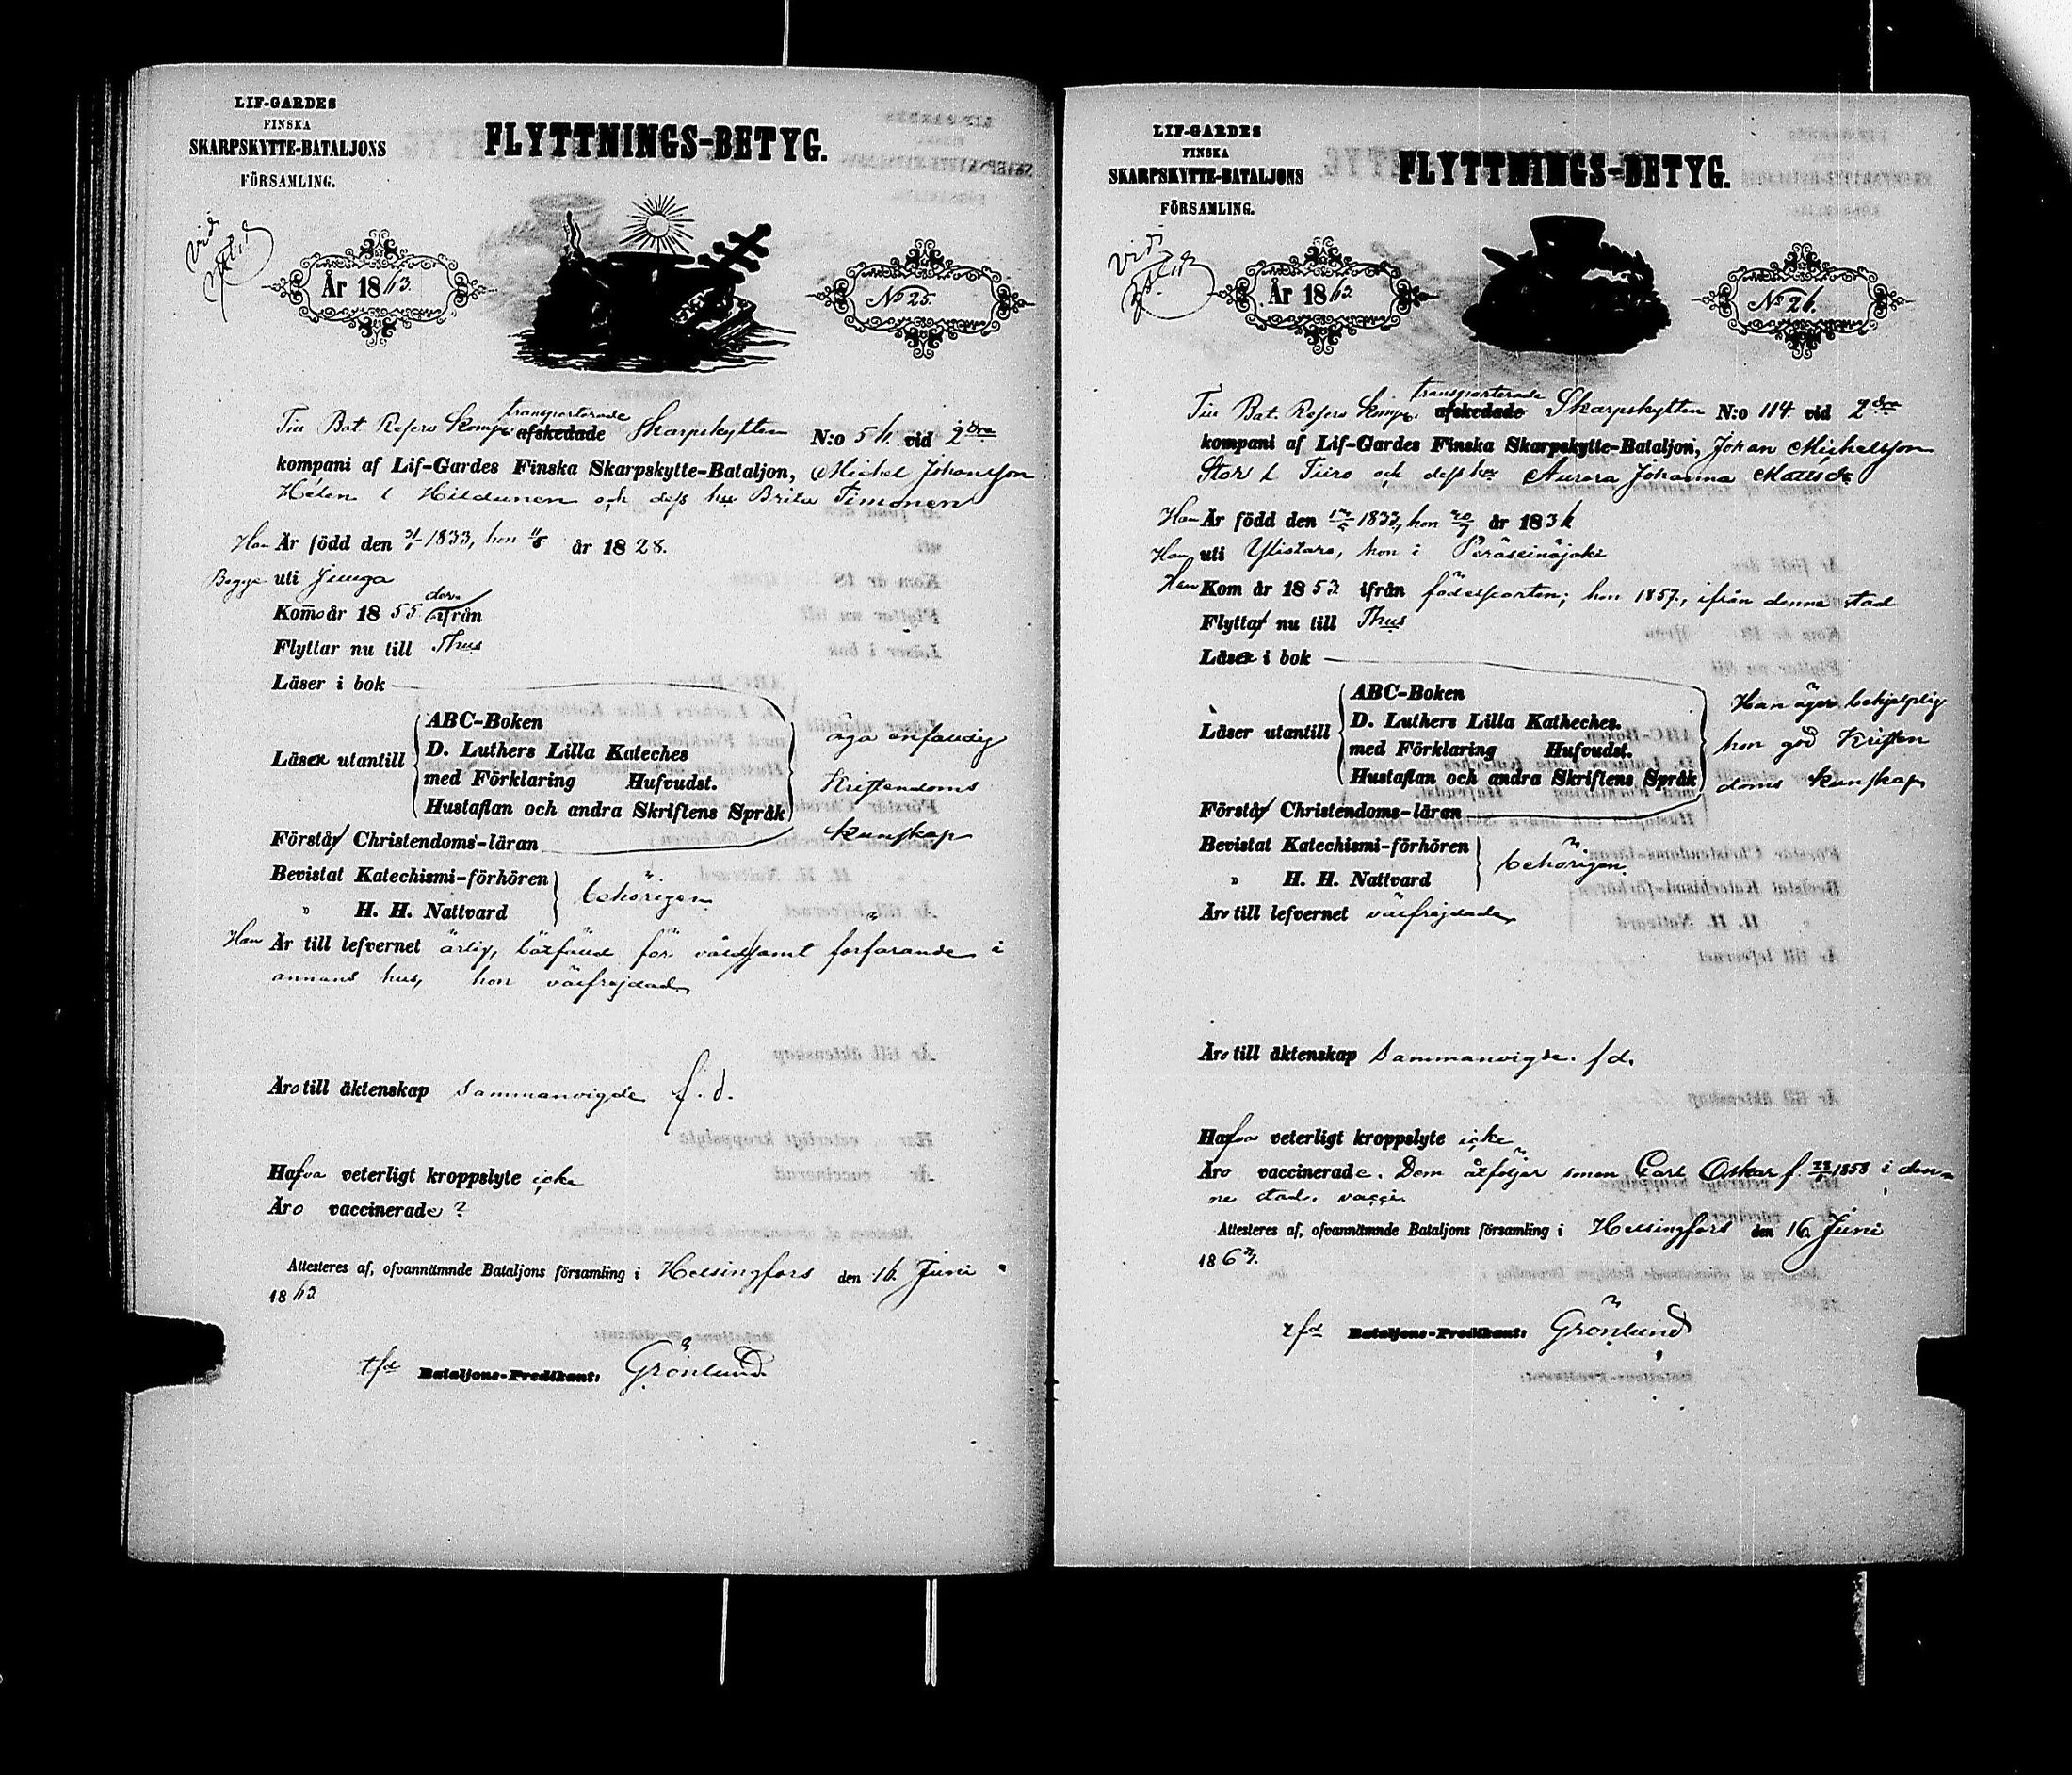 LIF-GARDES
FINSKA
SKARPSKYTTE-BATALJONS
FÖRSAMLING.
FLYTTNINGS-BETYG.
Vidi
År 1863
No 25.
Till Bat. Reserv Komp. transporterade afskedade Skarpskytten N:o 56 vid 2dra
kompani af Lif-Gardes Finska Skarpskytte-Bataljon, Michel Johansson
Helen l Hildunen och dess hu Brita Timonen
Han Är född den 1833, hon år 1828.
Begge uti Juuga
Komo år 1855 der ifrån
Flyttar nu till Thus
Läser i bok
Läser utantill
ABC-Boken
D. Luthers Lilla Kateches
med Förklaring Hufvudst.
Hustaflan och andra Skriftens Språk
äga enfaldig
Kristendoms
kunskap
Förstår Christendoms-läran
Bevistat Katechismi-förhören
" H. H. Nattvard
behörigen
Han Är till lefvernet ärlig, bötfäld för våldsamt förfarande i
annans hus, hon välfrejdad
Äro till äktenskap sammanvigde f. d.
Hafva veterligt kroppslyte icke
Äro vaccinerade?
Attesteres af, ofvannämnde Bataljons församling i Helsingfors den 16 Juni
1863
tfd Bataljons-Predikant: Grönlund
LIF-GARDES
FINSKA
SKARPSKYTTE-BATALJONS
FÖRSAMLING.
FLYTTNINGS-BETYG.
Vidi
År 1863
No 26.
Till Bat. Reserv Komp. transporterade afskedade Skarpskytten N:o 114 vid 2dra
kompani af Lif-Gardes Finska Skarpskytte-Bataljon, Johan Michelsson
Stor l Tiiro och dess hu Aurora Johanna Mattsdr
Han Är född den 1833, hon 20/7 år 1836
Han uti Ylistaro, hon i Peräseinäjoki
Han Kom år 1853 ifrån födelseorten; hon 1857, ifrån denna stad
Flyttar nu till Thus
Läser i bok
Läser utantill
ABC-Boken
D. Luthers Lilla Katheches.
med Förklaring Hufvudst.
Hustaflan och andra Skriftens Språk
Han äger behjelplig
hon god Kristen
doms kunskap
Förstår Christendoms-läran
Bevistat Katechismi-förhören
" H. H. Nattvard
behörigen
Äro till lefvernet välfrejdade
Äro till äktenskap Sammanvigde. f d.
Hafva veterligt kroppslyte icke
Äro vaccinerade. Dem åtföljer sonen Carl Oskar f. 1858 i den-
ne stad. vacci.
Attesteres af, ofvannämnde Bataljons församling i Helsingfors den 16 Juni
1863.
tfd Bataljons-Predikant: Grönlund